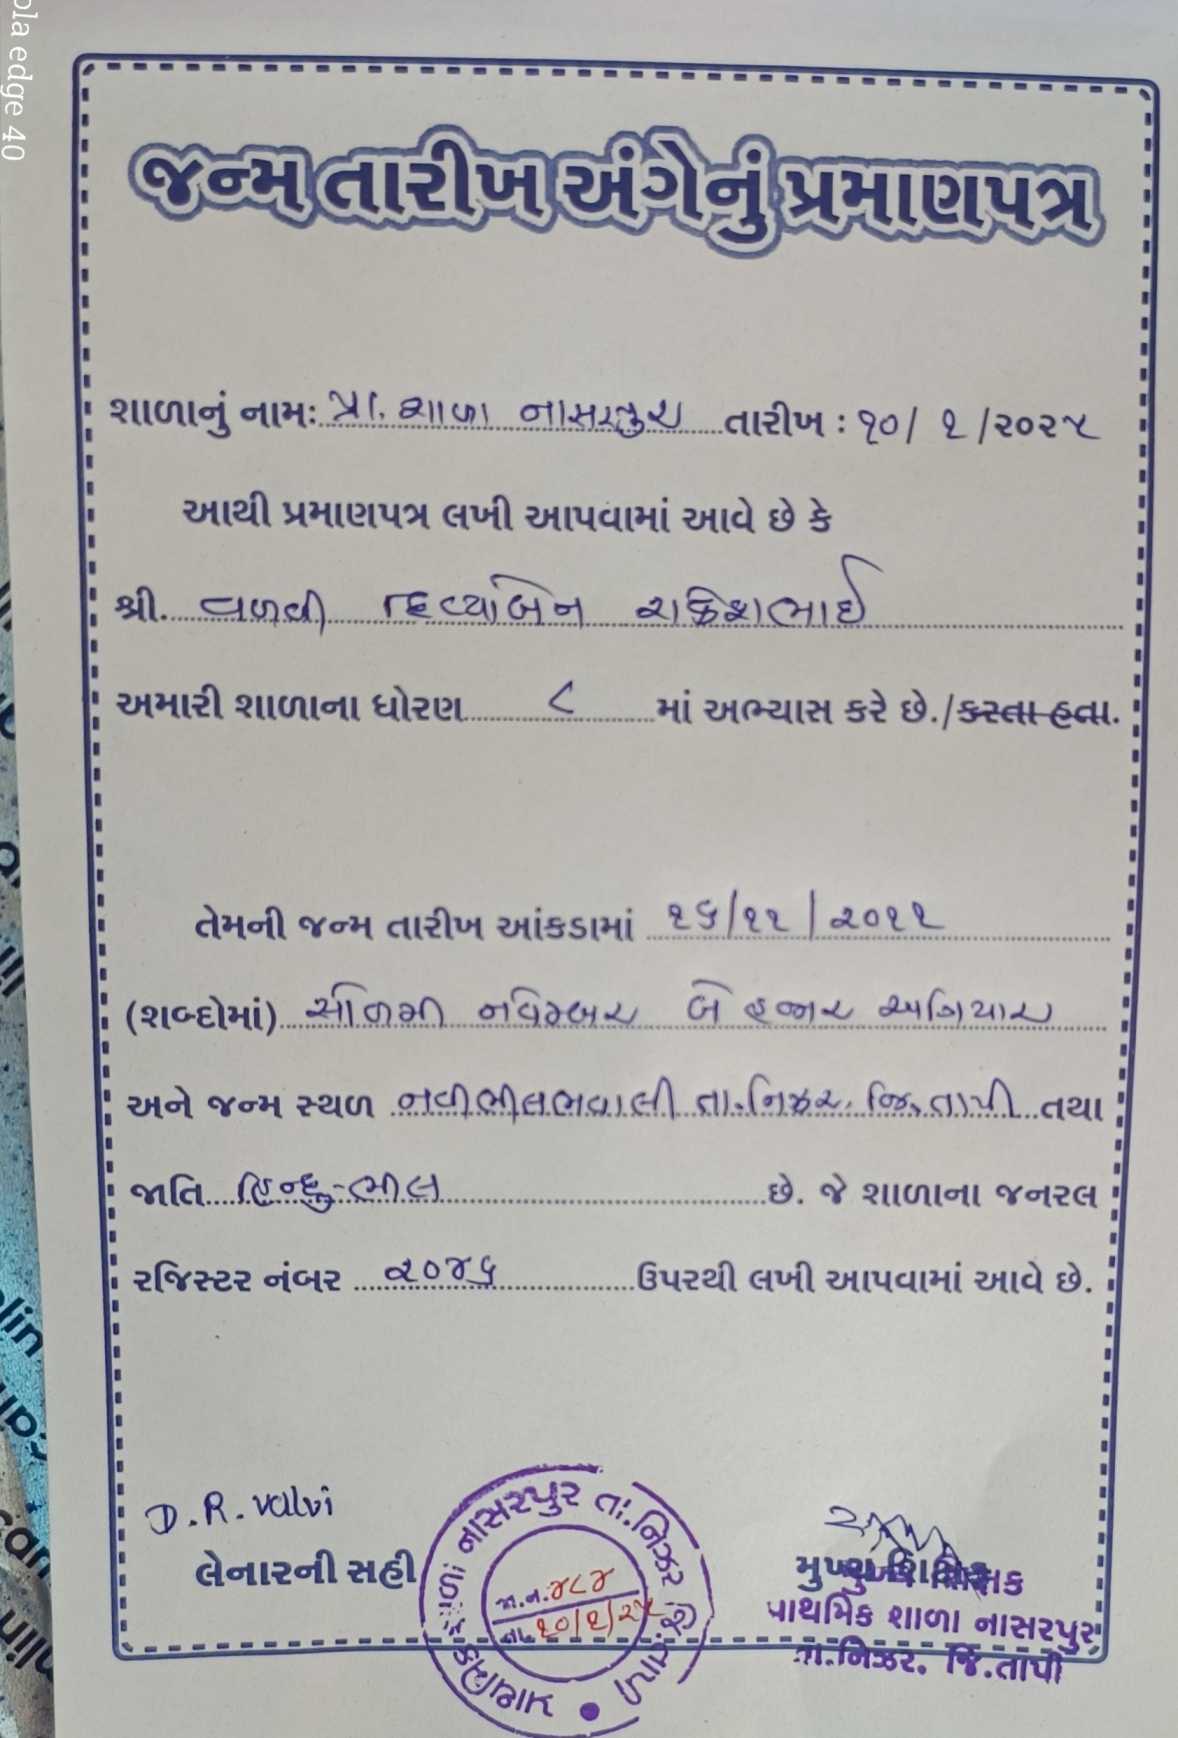 જન્મ તારીખ અંગેનું પ્રમાણપત્ર
શાળાનું નામ: પ્રા. શાળા નાસરપુર તારીખ : ૧૦/ ૧ /૨૦૨૫
આથી પ્રમાણપત્ર લખી આપવામાં આવે છે કે
શ્રી. વળવી દિવ્યાબેન રાકેશભાઈ
અમારી શાળાના ધોરણ ૮ માં અભ્યાસ કરે છે./કરતા હતા.
તેમની જન્મ તારીખ આંકડામાં ૧૬/૧૧/૨૦૧૧
(શબ્દોમાં) સોળમી નવેમ્બર બે હજાર અગિયાર
અને જન્મ સ્થળ નવીભીલભવાલી તા. નિઝર, જિ. તાપી તથા
જાતિ હિન્દુ-ભીલ છે. જે શાળાના જનરલ
રજિસ્ટર નંબર ૨૦૪૬ ઉપરથી લખી આપવામાં આવે છે.
D.R. valvi
લેનારની સહી
પ્રાથમિક શાળા નાસરપુર તા. નિઝર જી. તાપી
જા.નં. ૪૮૪
તા. ૧૦/૧/૨૫
મુખ્ય શિક્ષક
પ્રાથમિક શાળા નાસરપુર
તા. નિઝર. જિ. તાપી
ola edge 40